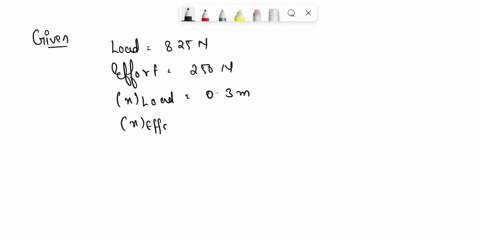 Given
Load = 825 N
Effort = 250 N
(x) Load = 0.3 m
(x) Effo